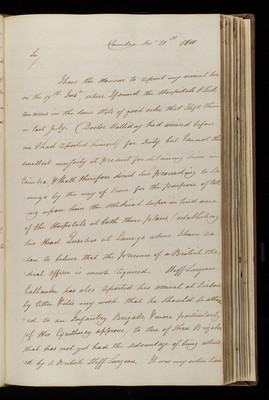 Coimbra Novr. 21st 1811
Sir
I have the Honour to report my arrival here
on the 19th Inst., where I found the Hospitals & Sick
in the same state of good order that I left them
in last July. Doctor Halliday had arrived before
me & had reported himself for duty but I see not the
smallest necessity at present for detaining him in
Coimbra, & shall therefore direct his proceeding to La-
mego by the way of Viseu for the purpose of tak-
ing upon him the Medical superintendance
of the Hospitals at both these places, establishing
his Head Quarters at Lamego where I have rea-
son to believe that the presence of a British Me-
dical Officer is much required. Staff Surgeon
Callander has also reported his arrival at Lisbon
by letter & states my wish that he should be attach-
ed to an Infantry Brigade & more particularly,
if His Excellency approves, to one of those Brigades
that has not yet had the advantage of being attend-
ed by a British Staff Surgeon. It was my intention